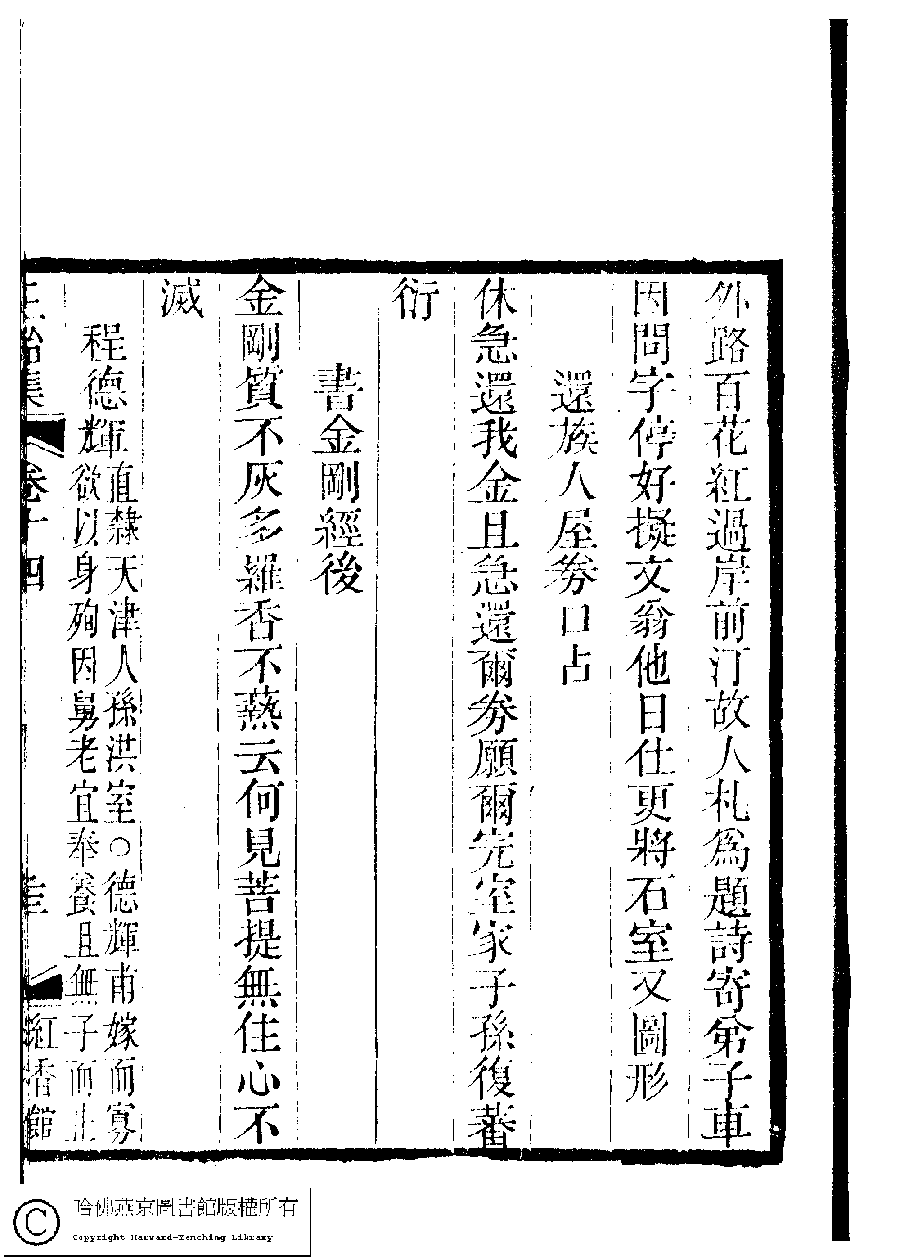 外路百花紅過岸前汀故人札為題詩寄弟子車
因問字停好擬文翁他日仕更將石室又圖形
還族人屋劵口占
休急還我金且急還爾劵願爾完室家子孫復蕃
衍
書金剛經後
金剛質不灰多羅香不爇云何見菩提無住心不
滅
程德輝直隸天津人孫洪室○德輝甫嫁而寡
欲以身殉因舅老宜奉養且無子而止
正始集 卷十四 紅香館
哈佛燕京圖書館版權所有
Copyright Harvard-Yenching Library